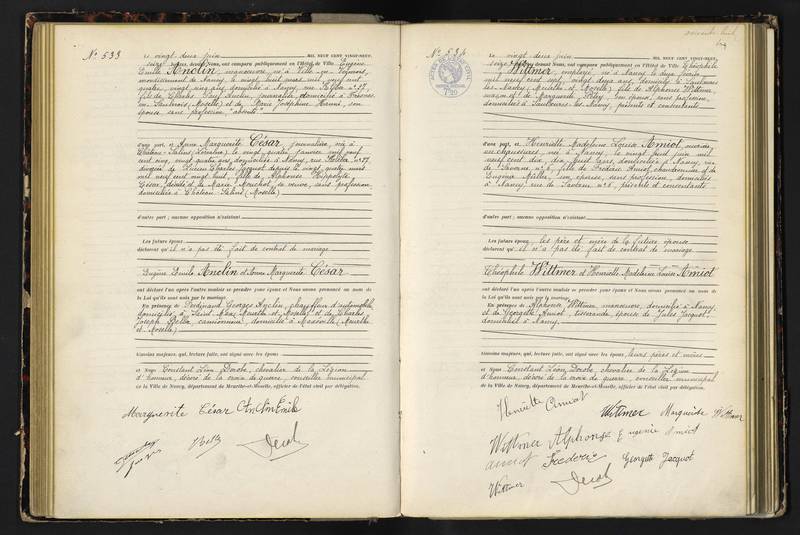 N° 533
Le vingt deux juin MIL NEUF CENT VINGT-NEUF,
seize heures, devant Nous, ont comparu publiquement en l'Hôtel de Ville Eugène
Emile Anclin, manoeuvre, né à
le vingt huit mars mil neuf cent
quatre, vingt cinq ans, domicilié à Nancy, rue n° 37,
fils de Charles Anclin, journalier, domicilié à Fresnes
en Saulnois (Moselle) et de Marie Joséphine Hanné, son
épouse sans profession, absents
d'une part, et Anne Marguerite César, journalière, née à
Château-Salins (Lorraine), le vingt quatre janvier mil neuf
cent cinq, vingt quatre ans, domiciliée à Nancy, rue n° 37,
divorcée de Lucien Charles Jacquot depuis le vingt quatre mars
mil neuf cent vingt huit, fille de Alphonse Hippolyte
César, décédé et de Marie Mouchot, sa veuve, sans profession
domiciliée à Château Salins (Moselle)
d'autre part; aucune opposition n'existant
Les futurs époux
déclarent qu'il n'a pas été fait de contrat de mariage
Eugène Emile Anclin et Anne Marguerite César
ont déclaré l'un après l'autre vouloir se prendre pour époux et Nous avons prononcé au nom de
la Loi qu'ils sont unis par le mariage.
En présence de Ferdinand Georges Anclin, chauffeur d'automobile,
domicilié à Saint-Max (Meurthe et Moselle) et de Charles
Joseph Bella, camionneur, domicilié à Maxéville (Meurthe
et Moselle)
témoins majeurs, qui, lecture faite, ont signé avec les époux
et Nous Constant Léon Dorobe, chevalier de la Légion
d'honneur, décoré de la croix de guerre, conseiller municipal
de la Ville de Nancy, département de Meurthe-et-Moselle, officier de l'état civil par délégation.
Marguerite César Anclin Emile
N° 534
Le vingt deux juin MIL NEUF CENT VINGT-NEUF,
seize heures, devant Nous, ont comparu publiquement en l'Hôtel de Ville Théophile
Wittmer, employé, né à Nancy le deux février
mil neuf cent sept, vingt deux ans, domicilié à Saulxures
les Nancy (Meurthe et Moselle) fils de Alphonse Wittmer,
et de Marguerite son épouse, sans profession,
domiciliés à Saulxures les Nancy, présents et consentants
d'une part, et Henriette Madeleine Louise Amiot, ouvrière
en chaussures, née à Nancy, le vingt huit juin mil
neuf cent dix, dix huit ans, domiciliée à Nancy, rue
de Saverne n° 6, fille de Frédéric Amiot, chaudronnier et de
Eugénie Müller, son épouse, sans profession, domiciliés
à Nancy rue de Saverne n° 6, présents et consentants
d'autre part; aucune opposition n'existant
Les futurs époux, les père et mère de la future épouse
déclarent qu'il n'a pas été fait de contrat de mariage
Théophile Wittmer et Henriette Madeleine Louise Amiot
ont déclaré l'un après l'autre vouloir se prendre pour époux et Nous avons prononcé au nom de
la Loi qu'ils sont unis par le mariage.
En présence de Alphonse Wittmer, manoeuvre, domicilié à Nancy
et de Georgette Amiot, tisserande, épouse de Jules Jacquot,
domiciliée à Nancy
témoins majeurs, qui, lecture faite, ont signé avec les époux, leurs pères et mères
et Nous Constant Léon Dorobe, chevalier de la Légion
d'honneur, décoré de la croix de guerre, conseiller municipal
de la Ville de Nancy, département de Meurthe-et-Moselle, officier de l'état civil par délégation.
Henriette Amiot
Wittmer Marguerite Wittmer
Wittmer Alphonse Eugénie Amiot
Amiot Frédéric Georgette Jacquot
Wittmer